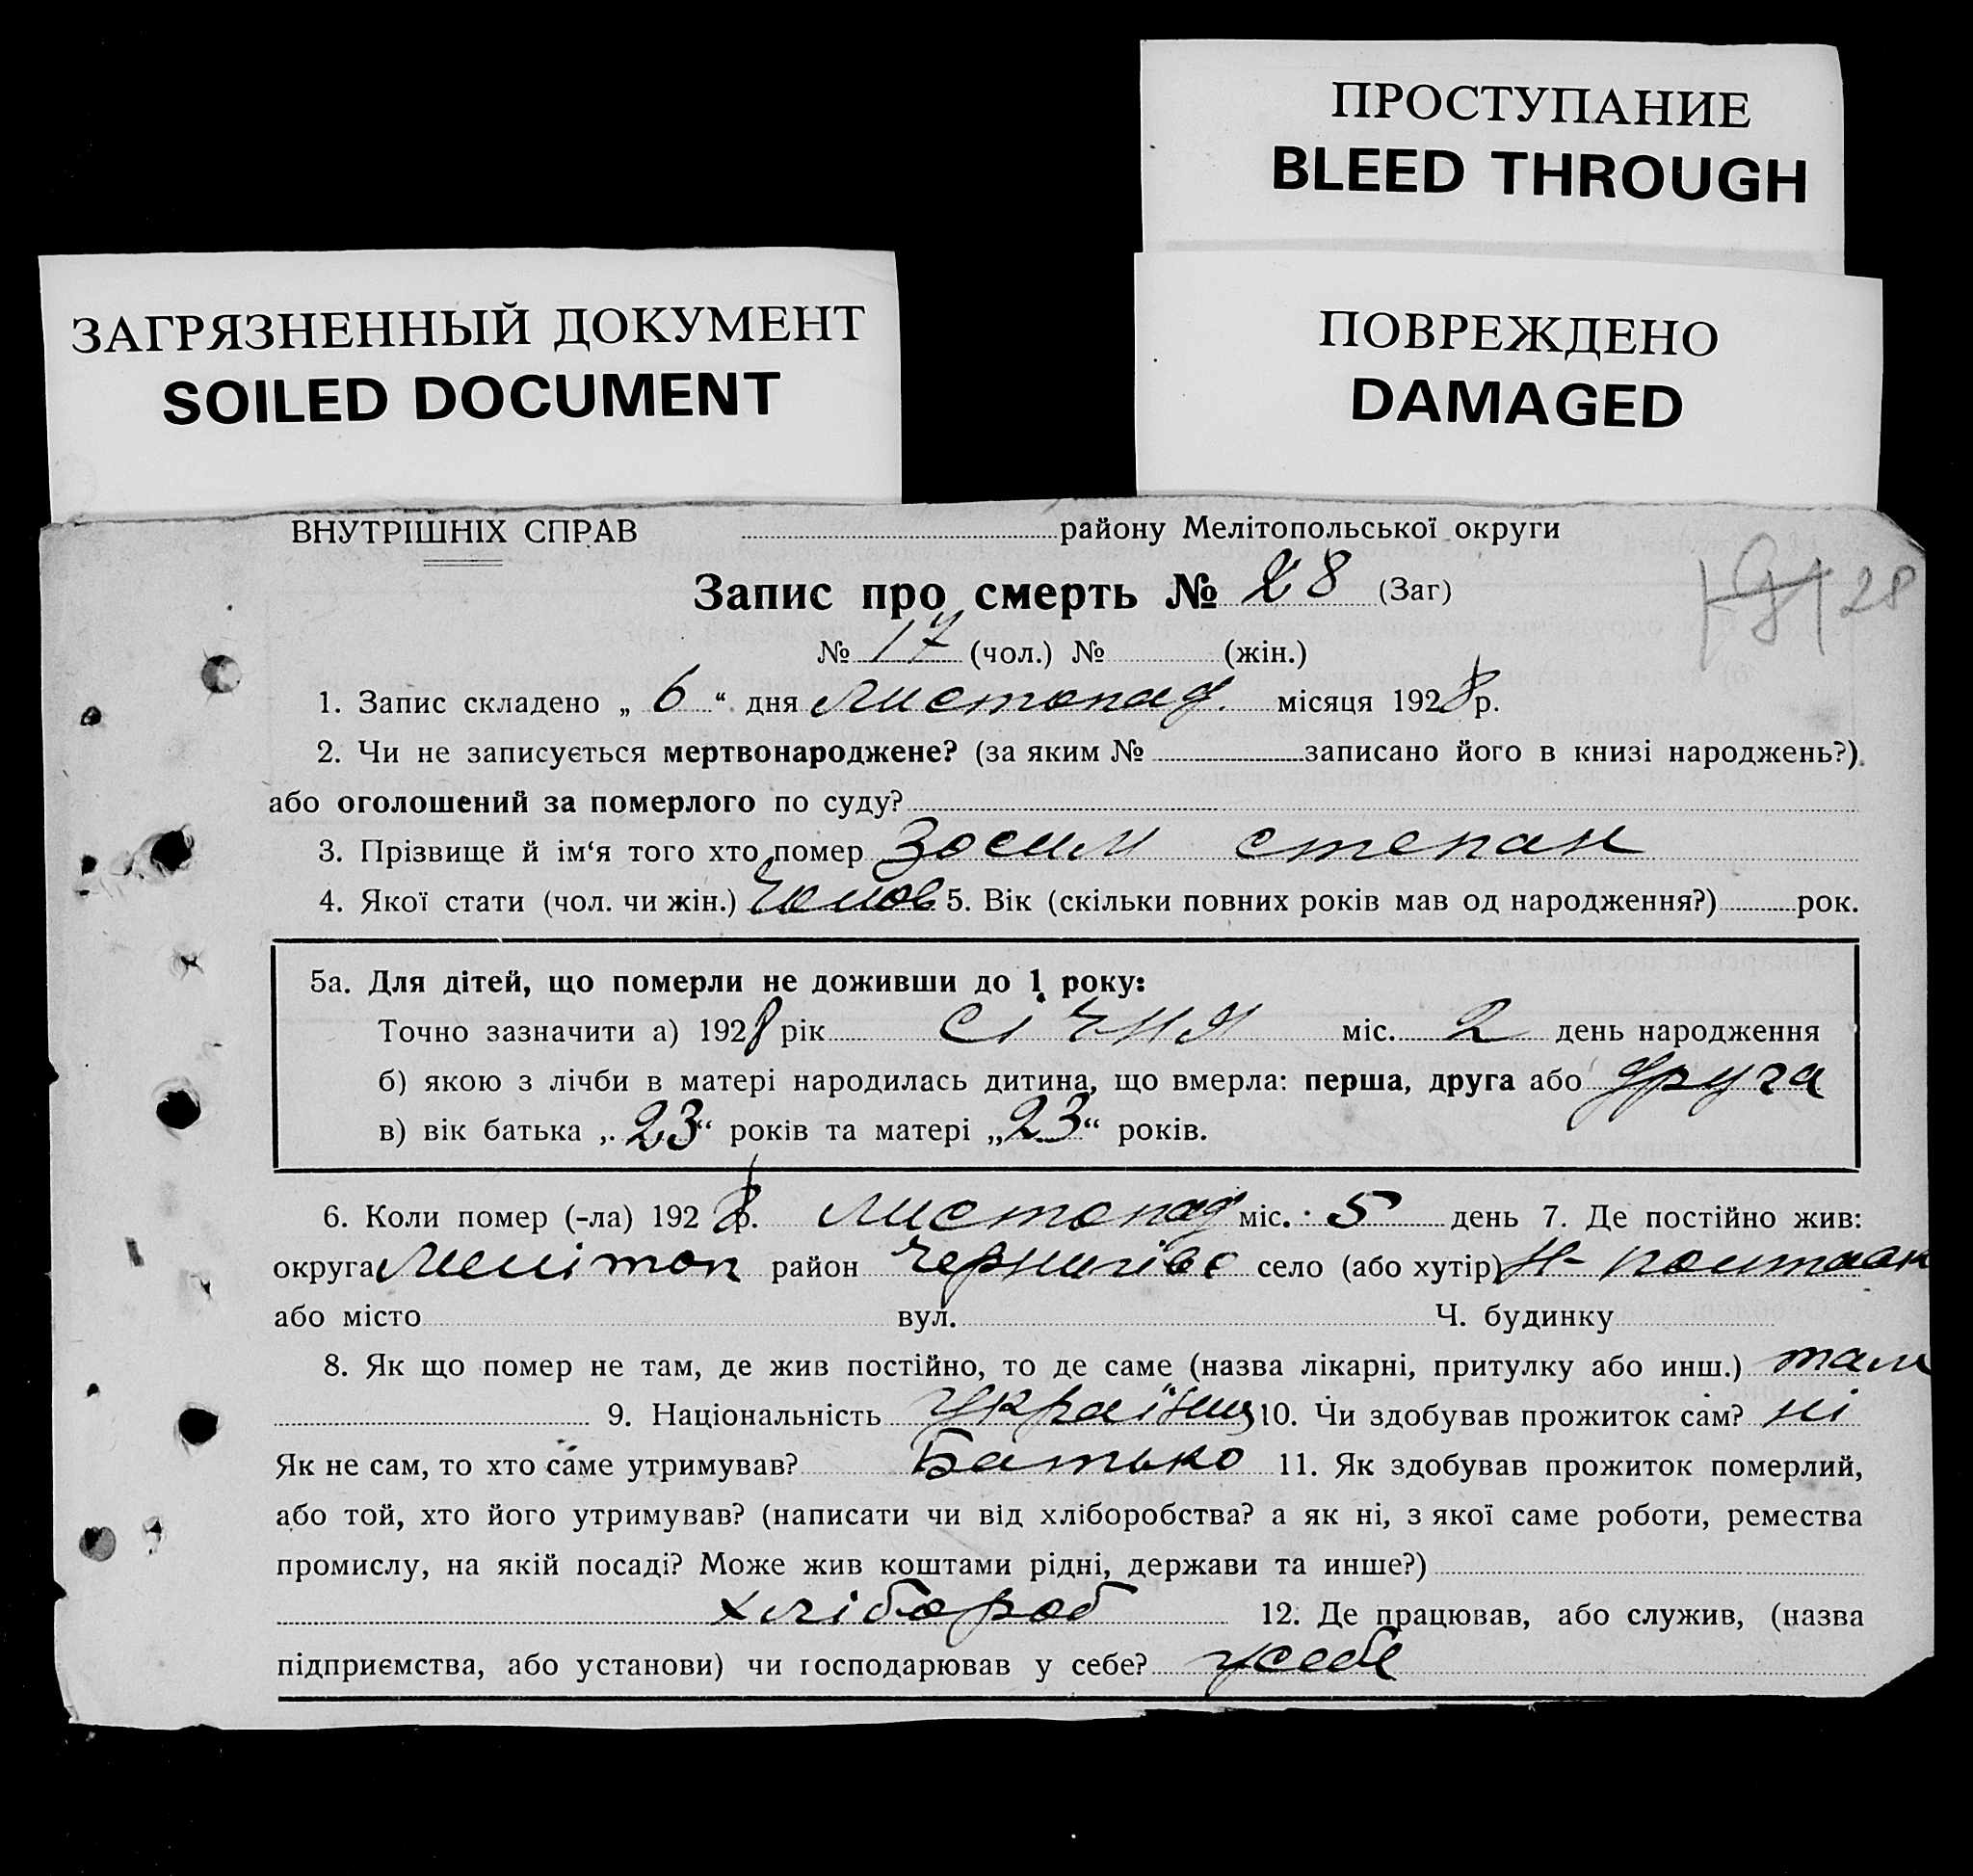 ПРОСТУПАНИЕ
BLEED THROUGH
ЗАГРЯЗНЕННЫЙ ДОКУМЕНТ
SOILED DOCUMENT
ПОВРЕЖДЕНО
DAMAGED
ВНУТРІШНІХ СПРАВ району Мелітопольської округи
Запис про смерть № 28 (Заг) 28
№ 17 (чол.) № (жін.)
1. Запис складено „ 6 “ дня листопад. місяця 1928 р.
2. Чи не записується мертвонароджене? (за яким № записано його в книзі народжень?)
або оголошений за померлого по суду?
3. Прізвище й ім‘я того хто помер Зосим степан
4. Якої стати (чол. чи жін.) Чолов 5. Вік (скільки повних років мав од народження?) рок.
5а. Для дітей, що померли не доживши до 1 року:
Точно зазначити а) 1928 рік січня міс. 2 день народження
б) якою з лічби в матері народилась дитина, що вмерла: перша, друга або друга
в) вік батька „ 23 “ років та матері „ 23 “ років.
6. Коли помер (-ла) 1928 р. листопад міс. 5 день 7. Де постійно жив:
округа Меліточ район Чернигівс село (або хутір) Н-полтавк
або місто вул. Ч. будинку
8. Як що помер не там, де жив постійно, то де саме (назва лікарні, притулку або инш.) там
9. Національність Українц 10. Чи здобував прожиток сам? ні
Як не сам, то хто саме утримував? Батько 11. Як здобував прожиток померлий,
або той, хто його утримував? (написати чи від хліборобства? а як ні, з якої саме роботи, ремества
промислу, на якій посаді? Може жив коштами рідні, держави та инше?)
хлібороб 12. Де працював, або служив, (назва
підприємства, або установи) чи господарював у себе? у себе